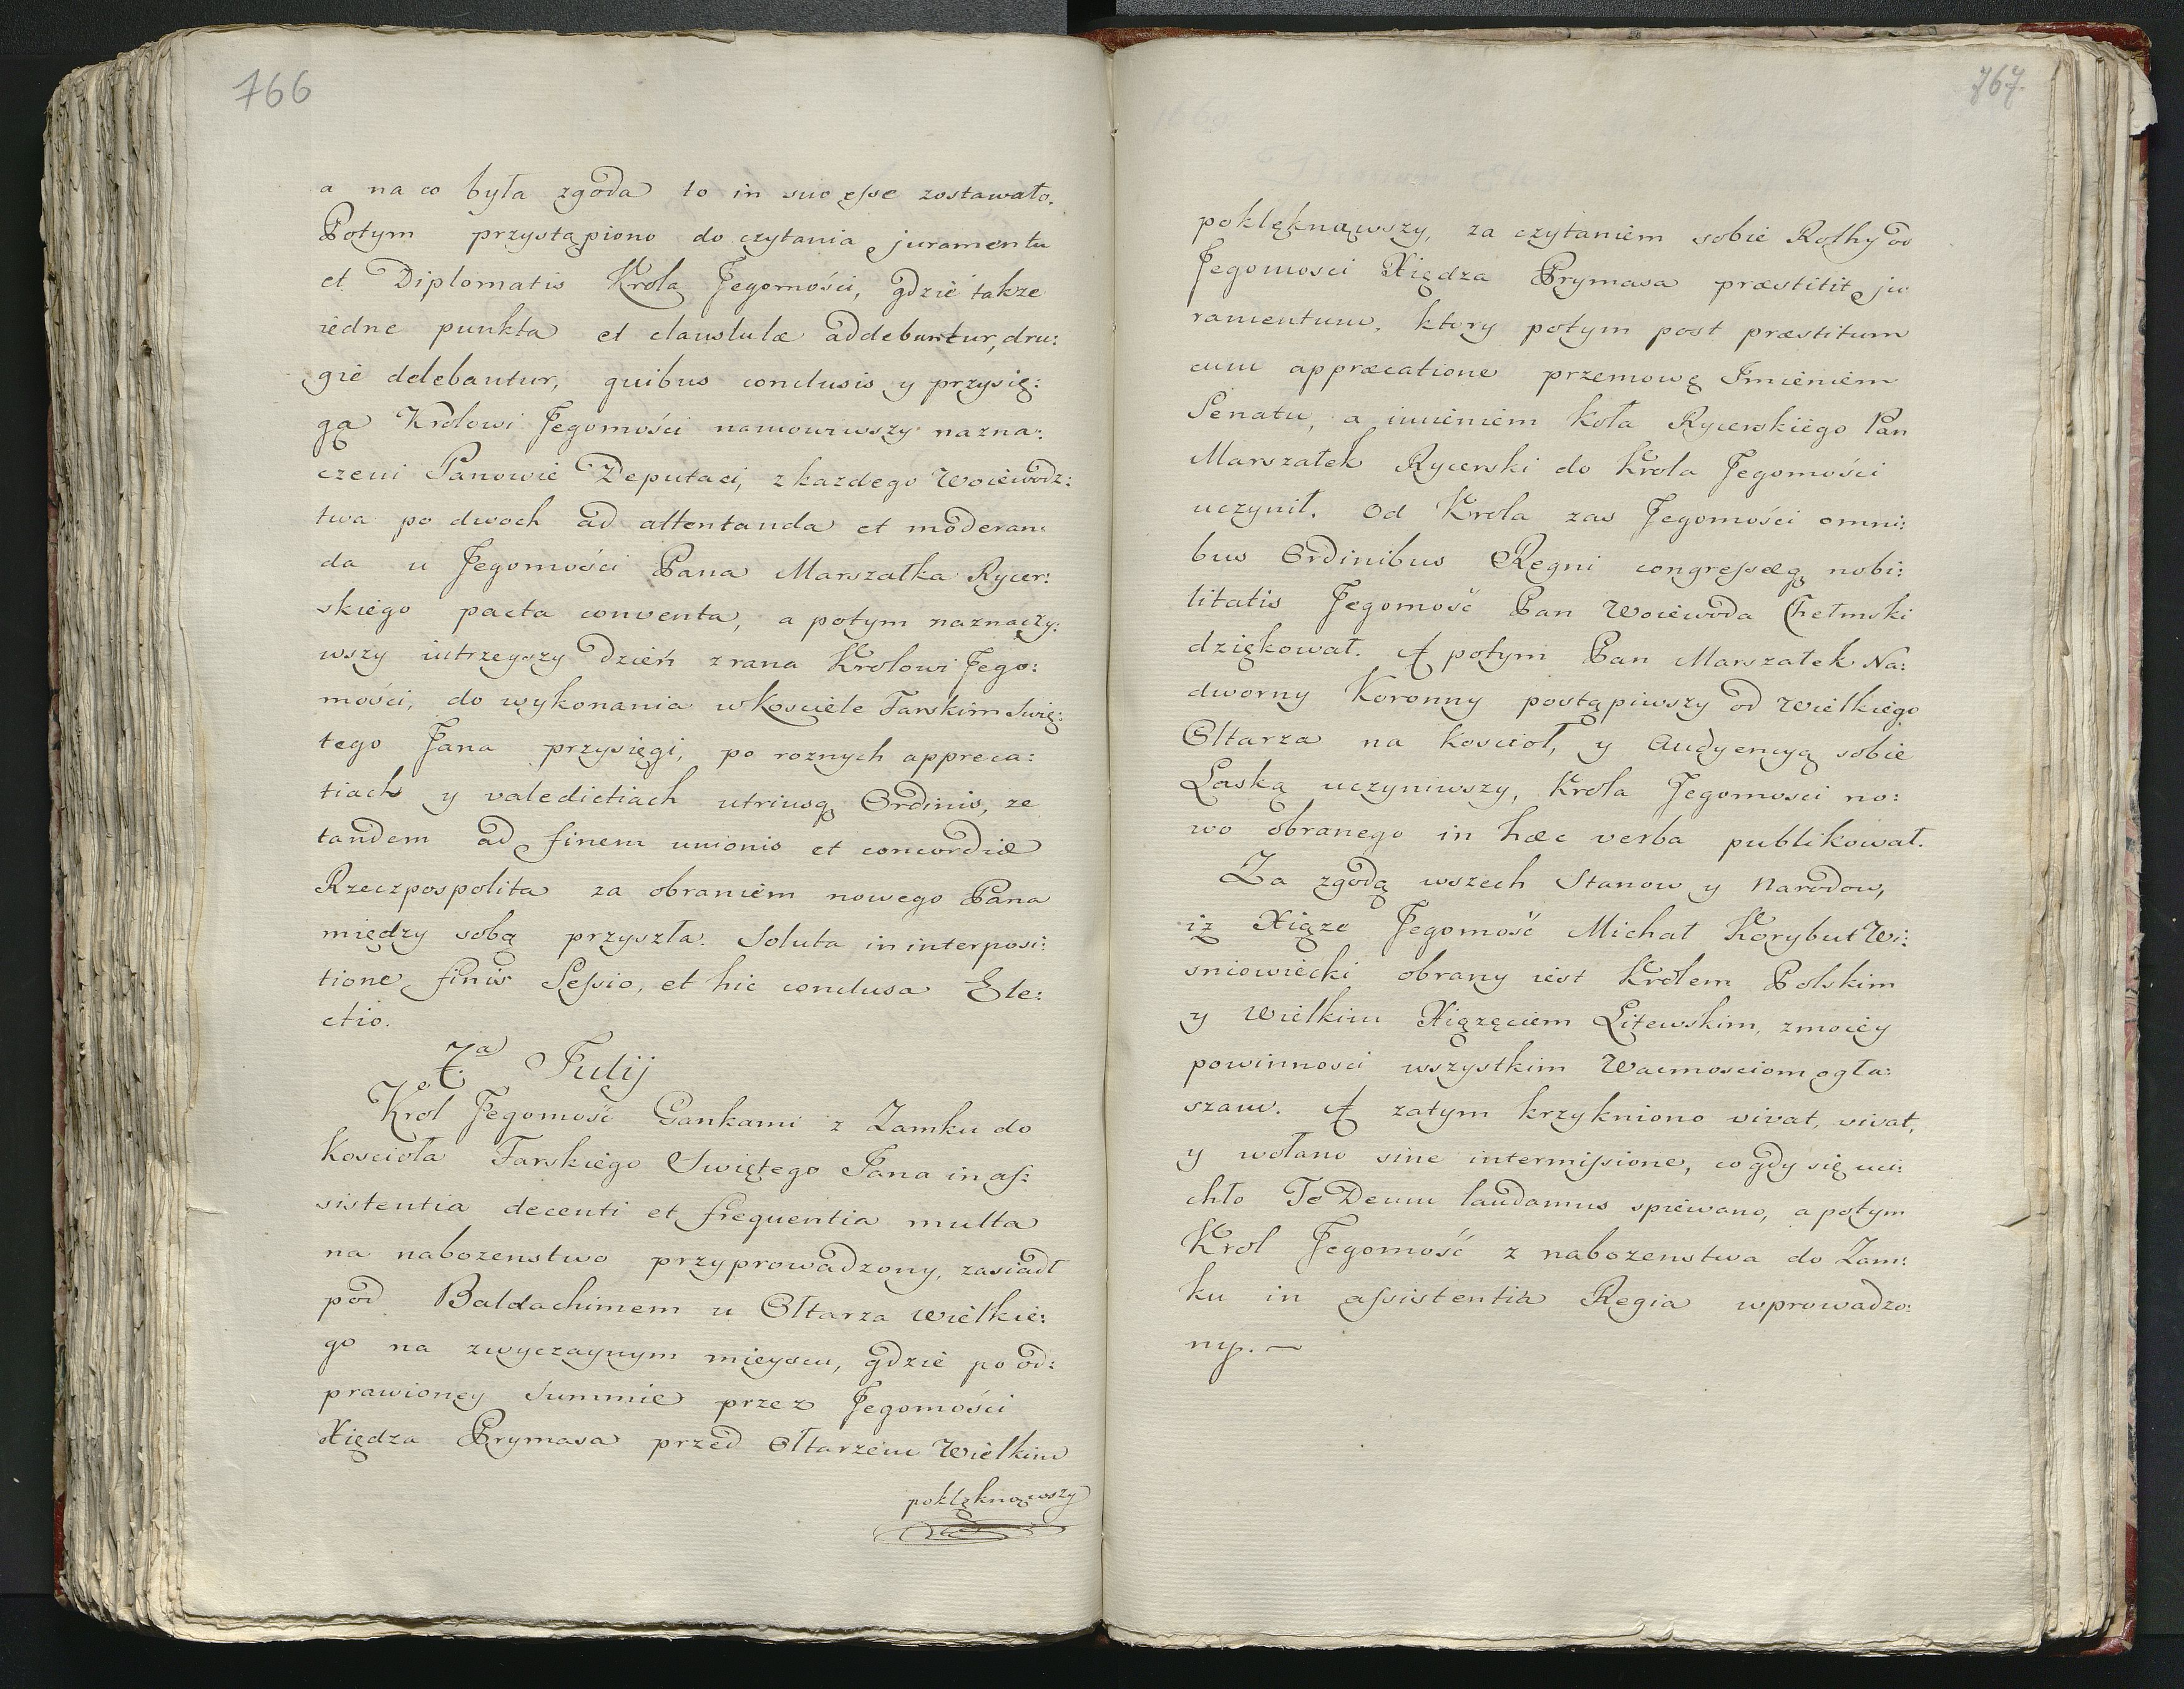 766
a na co była zgoda to in suo eſse zostawało.
Potym przystąpiono do czytania juramentu
et Diplomatis Krola Jegomości, gdzie takze
iedne punkta et clausulæ addebantur, dru:
gie delebantur, quibus conclusis y przysię:
gą Krolowi Jegomości namowiwszy nazna:
czeni Panowie Deputaci, z kazdego Woiewodz:
twa po dwoch ad attentanda et moderan:
da u Jegomości Pana Marszałka Rycer:
skiego pacta conventa, a potym naznaczy:
wszy iutrzeyszy dzień z rana Krolowi Jego:
mości, do wykonania w Kosciele Farskim Swię:
tego Jana przysięgi, po roznych appreca:
tiach y valedictiach utriusq Ordinis, ze
tandem ad finem unionis et concordiæ
Rzeczpospolita za obraniem nowego Pana
między sobą przyszła. Soluta in interposi:
tione finis Seſsio, et hic conclusa Ele:
ctio.
7.a Julij
Krol Jegomość Gankami z Zamku do
Koscioła Farskiego Swiętego Jana in aſ:
sistentia decenti et frequentia multa
na nabozenstwo przyprowadzony, zasiadł
pod Baldachimem u Ołtarza wielkie:
go na zwyczaynym mieyscu, gdzie po od:
prawioney Summie przez Jegomości
Xiędza Prymasa przed Ołtarzem Wielkim
poklęknąwszy
767
poklęknąwszy, za czytaniem sobie Rothy od
Jegomosci Xiędza Prymasa præstitit ju
ramentum, ktory potym post præstitum
cum appræcatione przemowę Imieniem
Senatu, a imieniem koła Rycerskiego Pan
Marszałek Rycerski do Krola Jegomości
uczynił. Od Krola zas Jegomości omni:
bus Ordinibus Regni congreſsæq nobi:
litatis Jegomość Pan Woiewoda Chełmski
dziękował. A potym Pan Marszałek Na:
dworny Koronny postąpiwszy od Wielkiego
Ołtarza na koscioł, y Audyencyą sobie
Laską uczyniwszy, Krola Jegomosci no:
wo obranego in hæc verba publikował.
Za zgodą wszech Stanow y Narodow,
iż Xiąze Jegomość Michał Korybut Wi:
sniowiecki obrany iest Krolem Polskim
y Wielkim Xiązęciem Litewskim, z moiey
powinnosci wszystkim Wacmosciom ogła:
szam. A zatym krzykniono vivat, vivat,
y wołano sine intermiſsione, co gdy się uci:
chło Te Deum laudamus spiewano, a potym
Krol Jegomość z nabozenstwa do Zam:
ku in aſsistentia Regia wprowadzo:
ny. —